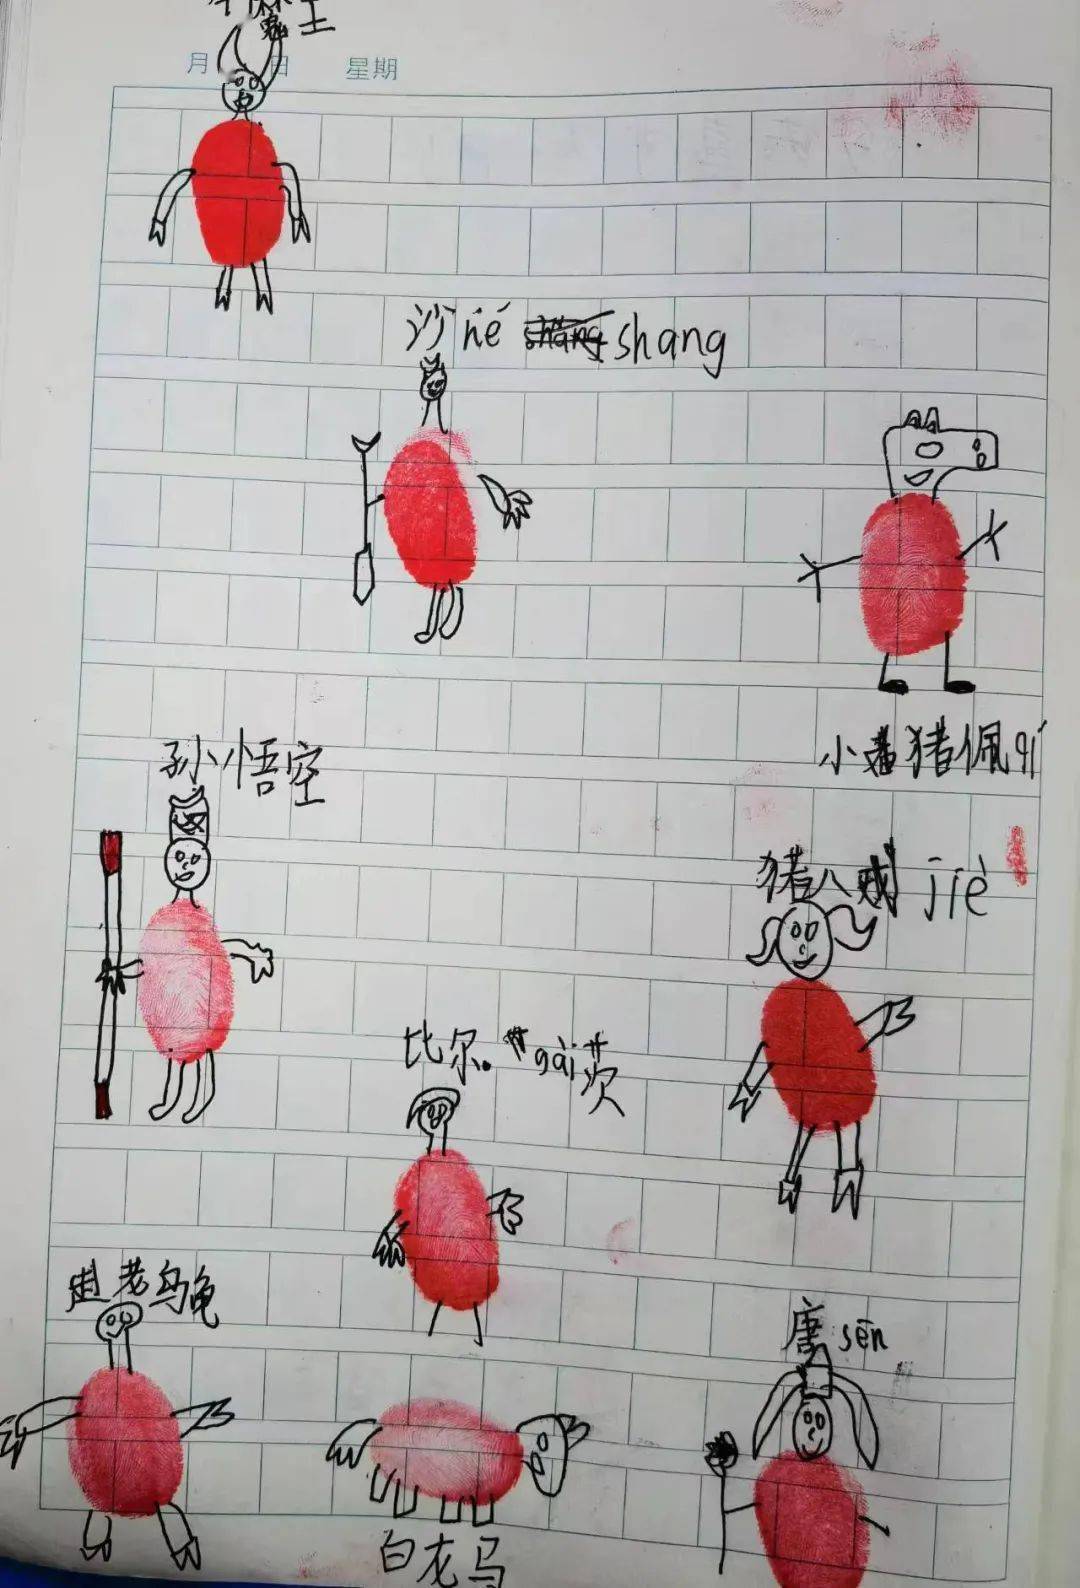 王
月 日 星期
沙 né shang
小猪佩qí
孙悟空
猪八戒 jiè
比尔.gài茨
老乌龟
唐sēn
白龙马